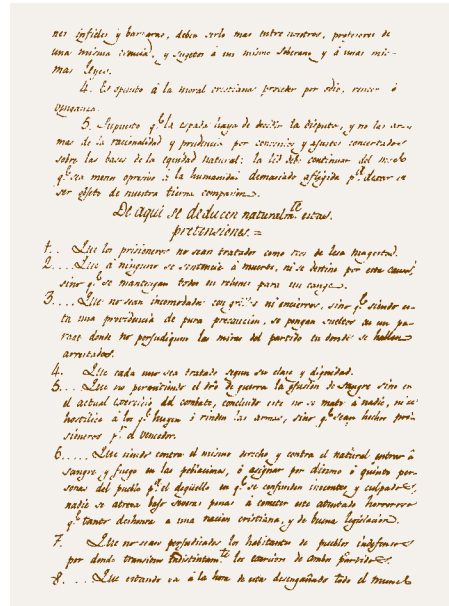 nes infieles y barvaras, deben serlo mas entre nosotros, profesores de
una misma creencia, y sugetos á un mismo soberano y á unas mis-
mas Leyes.
4. Es opuesto á la moral cristiana proceder por odio, rencor ó
venganza.
5. Supuesto q.e la espada haya de decidir la disputa, y no las ar-
mas de la racionalidad y prudencia por convenios y ajustes concertados
sobre las bases de la equidad natural: la lid debe continuar del modo
q.e sea menos opresivo á la humanidad demasiado afligida p.a dexar de
ser objeto de nuestra tierna compasion.
De aqui se deducen naturalm.te estas
pretensiones.=
1.. Que los prisioneros no sean tratados como reos de lesa magestad.
2.... Que á ninguno se sentencie á muerte, ni se destine por esta causa,
sino q.e se mantengan todos en rehenes para un cange.
3.... Que no sean incomodados con grillos ni encierros, sino q.e siendo es-
ta una providencia de pura precaucion, se pongan sueltos en un pa-
rage donde no perjudiquen las miras del partido en donde se hallen
arrestados.
4. Que cada uno sea tratado segun su clase y dignidad.
5... Que no permitiendo el dro de guerra la efusion de sangre sino en
el actual exercicio del combate, concluido este no se mate á nadie, ni se
hostilice á los q.e huyen ó rinden las armas, sino q.e sean hechos pri-
sioneros p.r el vencedor.
6..... Que siendo contra el mismo derecho y contra el natural entrar á
sangre, y fuego en las poblaciones, ó asignar por diezmo ó quinto per-
sonas del pueblo p.a el degüello en q.e se confunden inocentes y culpados,
nadie se atreva bajo severas penas á cometer este atentado horroroso
q.e tanto deshonra á una nacion cristiana, y de buena legislacion.
7. Que no sean perjudicados los habitantes de pueblos indefensos
por donde transiten indistintam.te los exercitos de ambos partidos.
8... Que estando ya á la hora de esta desengañado todo el mundo